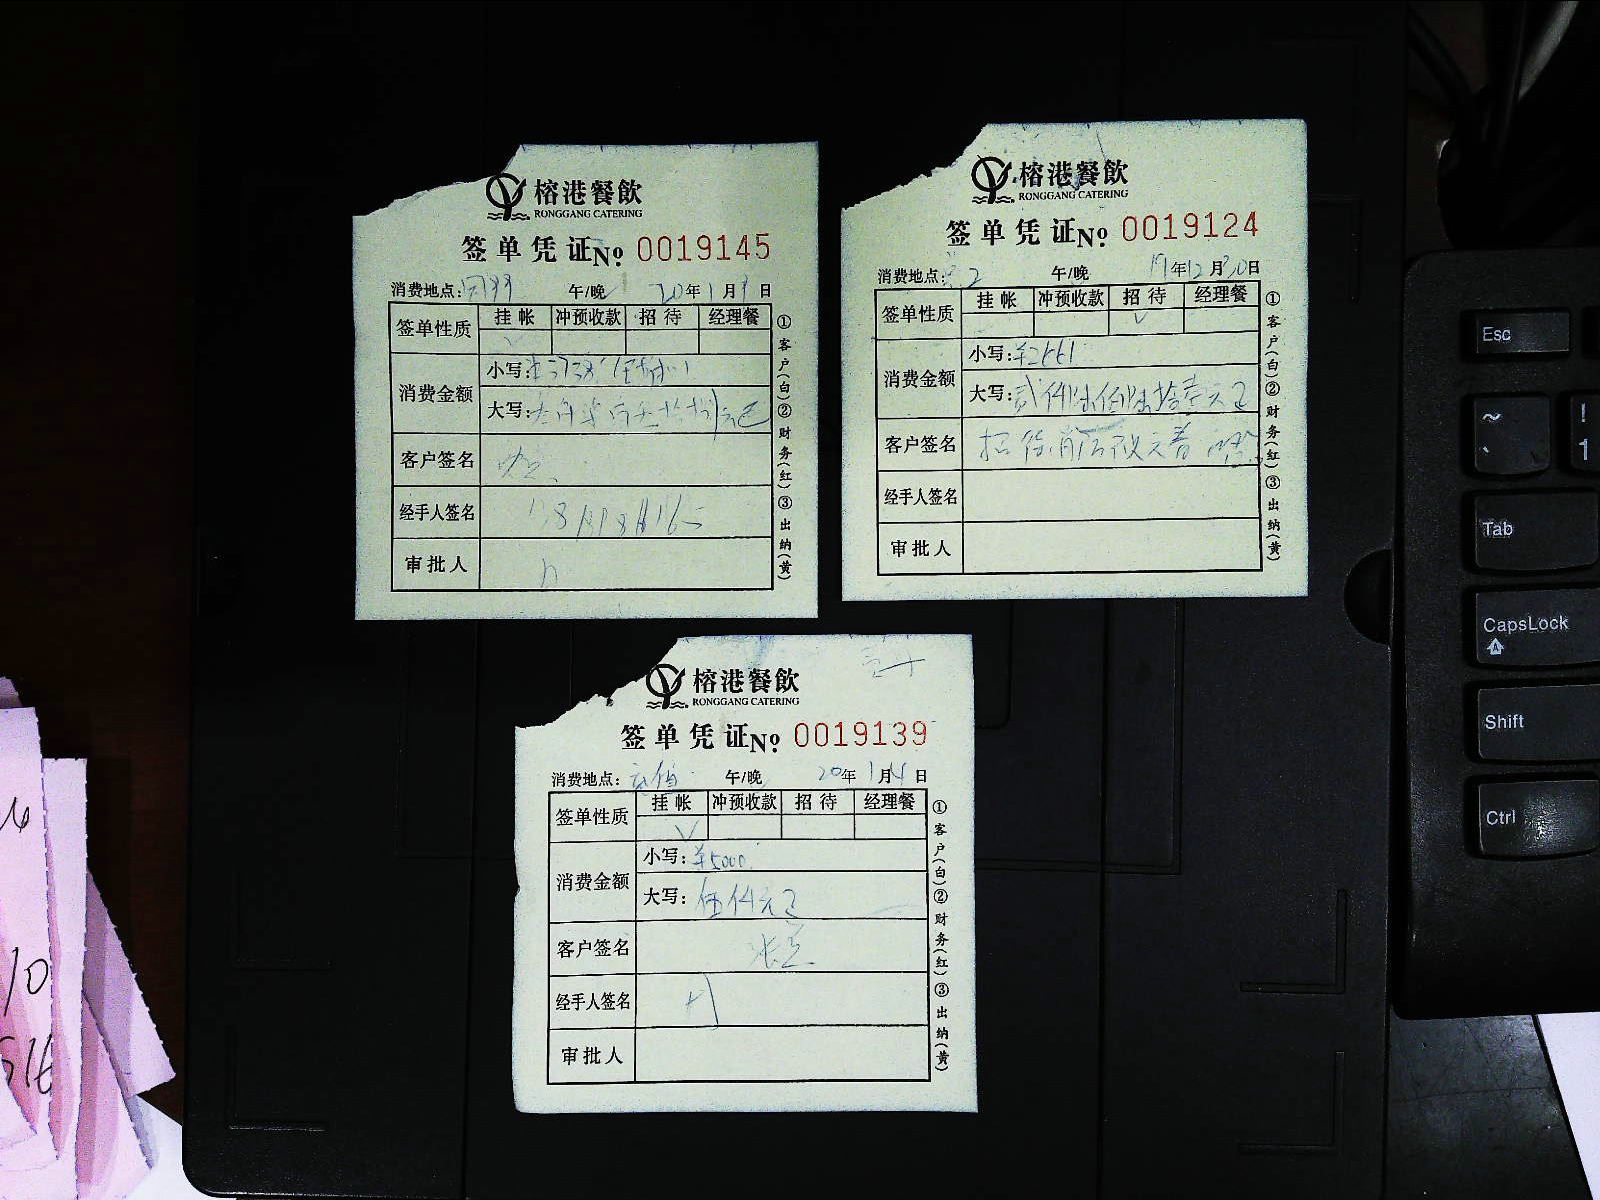 榕港餐飲
RONGGANG CATERING
签单凭证 No 0019145
消费地点: 午/晚 20年1月9日
签单性质 挂帐 冲预收款 招待 经理餐
消费金额
小写:
大写:
客户签名
经手人签名
审批人
①客户(白)②财务(红)③出纳(黄)
榕港餐飲
RONGGANG CATERING
签单凭证 No 0019124
消费地点: 午/晚 19年12月30日
签单性质 挂帐 冲预收款 招待 经理餐
消费金额
小写:¥2661
大写:贰仟陆佰陆拾壹元正
客户签名 招待
经手人签名
审批人
①客户(白)②财务(红)③出纳(黄)
榕港餐飲
RONGGANG CATERING
签单凭证 No 0019139
消费地点:充值 午/晚 20年1月4日
签单性质 挂帐 冲预收款 招待 经理餐
消费金额
小写:¥5000
大写:伍仟元正
客户签名
经手人签名
审批人
①客户(白)②财务(红)③出纳(黄)
Esc
~
`
!
1
Tab
CapsLock
Shift
Ctrl
10